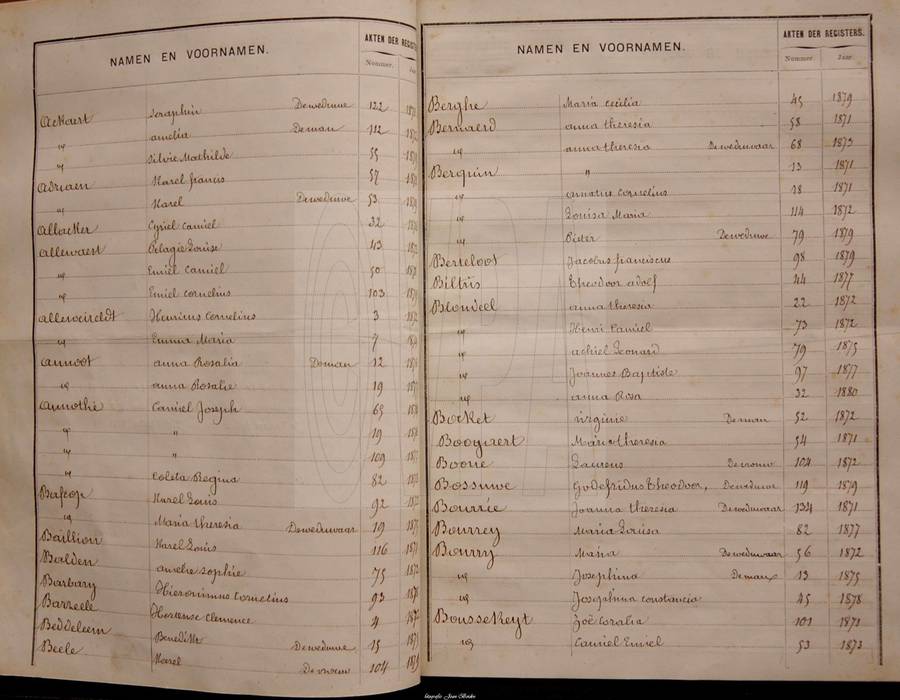 NAMEN EN VOORNAMEN. AKTEN DER REGISTERS
Nommer.
Ackaert Seraphin De weduwe 122
" amelia De man 112
" Silvie Mathilde 55
Adriaen Karel francis 57
" Karel De weduwe 53
Allacker Cyriel camiel 32
allewaert Pelagie Louise 43
" Emiel camiel 50
" Emiel cornelius 103
alleweireldt Henricus Cornelius 3
" Emma Maria 7
annoot anna Rosalia De man 12
" anna Rosalie 19
annothé Camiel Joseph 65
" " 19
" " 109
" Coleta Regina 82
Bafcop Karel Louis 92
" Maria theresia De weduwaar 19
Baillion Karel Louis 116
Balden amelie sophie 75
Barbary Hieronimus Cornelius 93
Barzeele Hortense clemence 4
Beddeleem Benedikt De weduwe 15
Beele Karel De vrouw 104
NAMEN EN VOORNAMEN. AKTEN DER REGISTERS.
Nommer. Jaar
Berghe Maria cecilia 45 1879
Bernaerd anna theresia 58 1871
" anna theresia De weduwaar 68 1873
Berquin " 13 1871
" amatus cornelius 18 1871
" Louisa Maria 114 1872
" Pieter De weduwe 79 1879
Berteloot Jacobus franciscus 98 1879
Biltris Theodoor adolf 44 1877
Blondeel anna theresia 22 1872
" Henri Camiel 73 1872
" achiel Leonard 79 1875
" Joannes Baptiste 97 1877
" anna Rosa 32 1880
Bocket virginie De man 52 1872
Booyaert Marie theresia 54 1871
Boone Laurens De vrouw 104 1872
Bossuwe Godefridus Theodoor, De weduwe 119 1879
Bourrie Joanna theresia De weduwaar 134 1871
Bourrey Maria Louisa 82 1877
Bourry Maria De weduwaar 56 1872
" Josephina De man 13 1875
" Josephina constancia 45 1878
Boussekeyt Zoë coralia 101 1871
" Camiel Emiel 53 1873